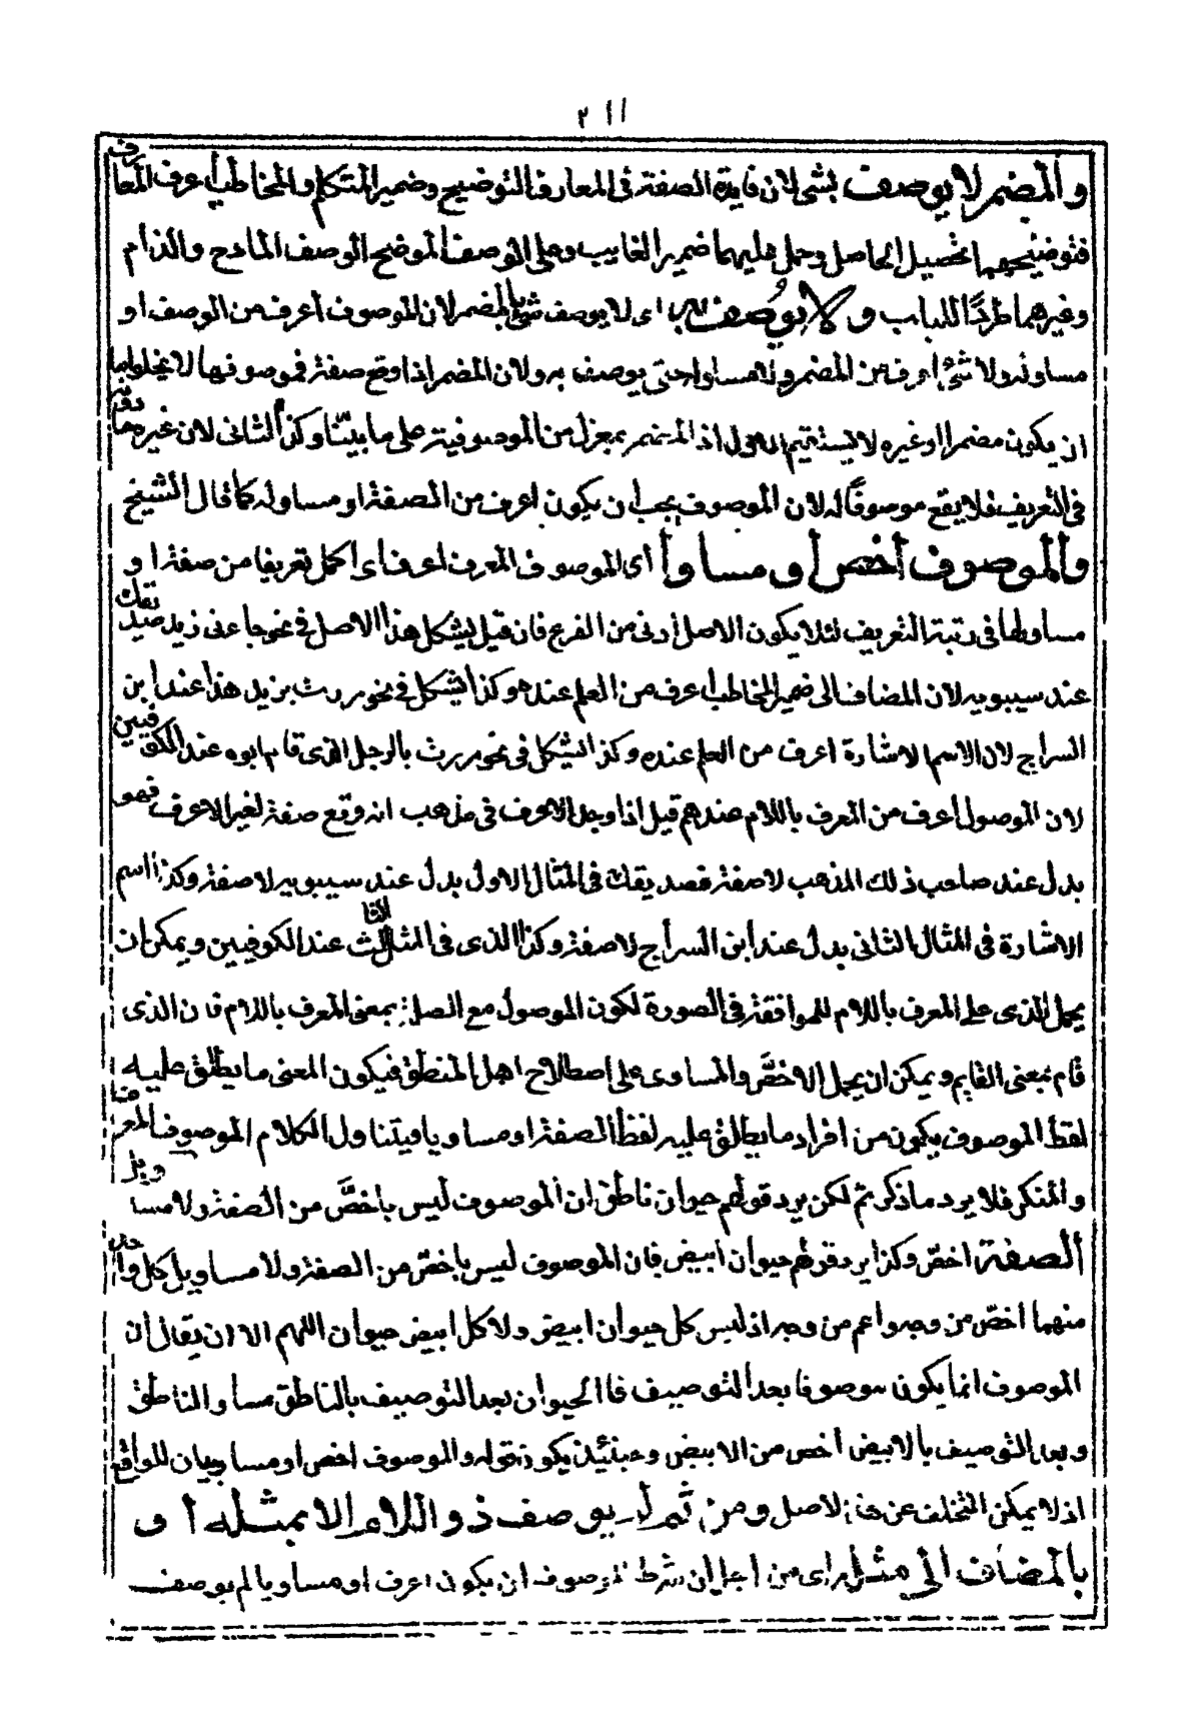 ٢١١
والمضمر لا يوصف بشى لان فايدة الصفة فى المعارف التوضيح وضمير المتكلم والمخاطب اعرف المعارف
فتوضيحهما تحصيل الحاصل وحمل عليهما ضمير الغايب وعلى الوصف الموضح الوصف المادح والذام
وغيرهما طردًا للباب ولا يُوصف به اى لا يوصف شئ بالمضمر لان الموصوف اعرف من الوصف او
مساو له ولا شئ اعرف من المضمر ولا مساو له حتى يوصف به ولان المضمر اذا وقع صفة فموصوفها لا يخلو اما
ان يكون مضمرا او غيره لا يستقيم الاول اذ المضمر بمعزل من الموصوفية على ما بيّنا وكذا الثانى لان غيره دونه حا
فى التعريف فلا يقع موصوفًا له لان الموصوف يجب ان يكون اعرف من الصفة او مساو له كما قال الشيخ
والموصوف أخص أو مساو أى الموصوف المعرف اعرف اى اكمل تعريفا من صفته او
مساو لها فى رتبة التعريف لئلا يكون الاصل أدنى من الفرع فان قيل يشكل هذا الاصل فى نحو جاءنى زيد صديقك
عند سيبويه لان المضاف الى ضمير المخاطب اعرف من العلم عنده وكذا يشكل فى نحو مررت بزيد هذا عند ابن
السراج لان الاسم الاشارة اعرف من العلم عنده وكذا يشكل فى نحو مررت بالرجل الذى قام ابوه عند الكوفيين
لان الموصول أعرف من المعرف باللام عندهم قيل اذا وجد الاعرف فى مذهب انه وقع صفة لغير الاعرف فهو
بدل عند صاحب ذلك المذهب لا صفة فصديقك فى المثال الاول بدل عند سيبويه لا صفة وكذا اسم
الاشارة فى المثال الثانى بدل عند أبن السرأج لا صفة وكذا الذى فى المثال الثالث عند الكوفيين ويمكن ان
يحمل الذى على المعرف باللام للموافقة فى الصورة لكون الموصول مع الصلة بمعنى المعرف باللام فان الذى
قام بمعنى القايم ويمكن ان يحمل الاخصّ والمساوى على اصطلاح اهل المنطق فيكون المعنى ما يطلق عليه
لفظ الموصوف يكون من افراد ما يطلق عليه لفظ الصفة او مساويا فيتناول الكلام الموصوف المعرف
والمنكر فلا يرد ما ذكر ثم لكن يرد قولهم حيوان ناطق ان الموصوف ليس باخصَّ من الصفة ولا مساو بل
الصفة اخصّ وكذا يرد قولهم حيوان ابيض فان الموصوف ليس باخصّ من الصفة ولا مساو بل كل واحد
منهما اخصّ من وجه واعم من وجه اذ ليس كل حيوان ابيض ولا كل ابيض حيوان اللهم الا ان يقال ان
الموصوف انما يكون موصوفا بعد التوصيف فاالحيوان بعد التوصيف بالناطق مساو الناطق
وبعد التوصيف بالابيض أخص من الابيض وحينئيذ يكون قوله والموصوف اخص او مساو بيان للواقع
اذ لا يمكن التخلف عن هذا الاصل ومن ثم لم يوصف ذو اللام الا بمثله أو
بالمضاف الى مثله اى من اجل ان شرط الموصوف ان يكون اعرف او مساويا لم يوصف